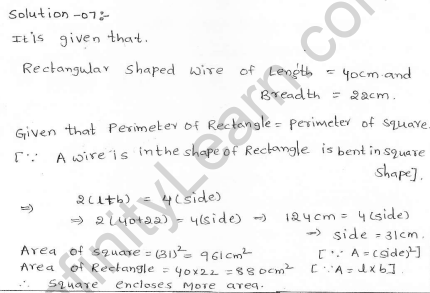 Solution-07:-
It is given that.
Rectangular shaped wire of Length = 40cm and
Breadth = 22cm.
Given that Perimeter of Rectangle = perimeter of square.
[∵ A wire is in the shape of Rectangle is bent in square
shape].
⇒ 2(l+b) = 4(side)
⇒ 2(40+22) = 4(side) ⇒ 124cm = 4(side)
⇒ side = 31cm.
Area of square = (31)² = 961cm² [∵ A=(side)²]
Area of Rectangle = 40×22 = 880cm² [∵ A = l×b].
∴ Square encloses More area.
InfinityLearn.com